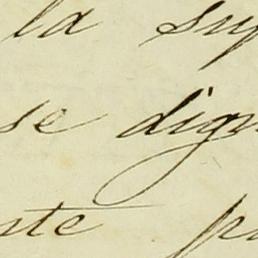 la sup
se dign
ste pa